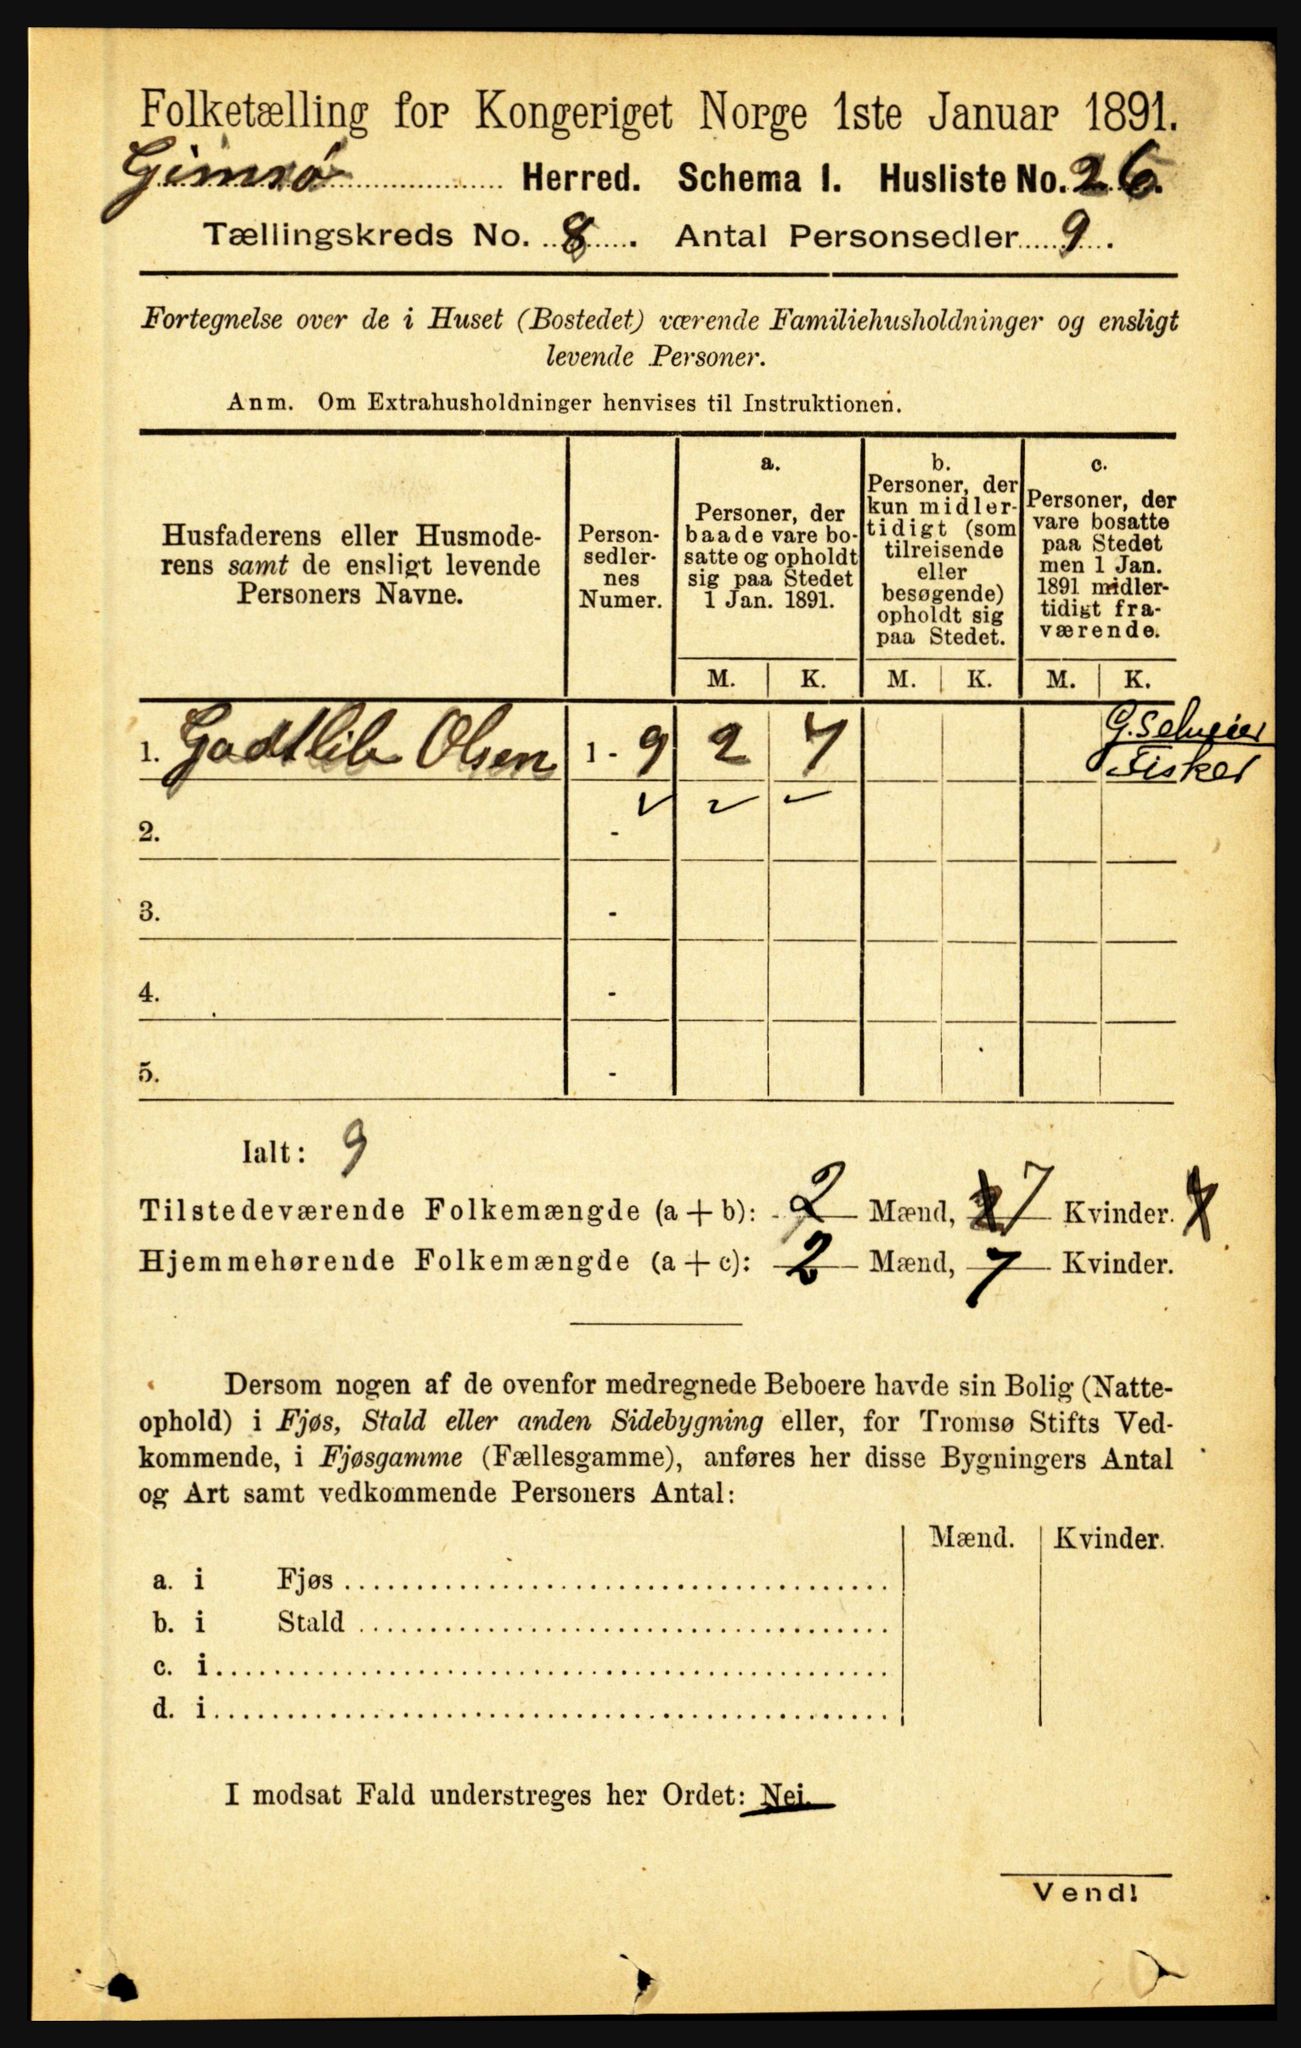 Folketælling for Kongeriget Norge 1ste Januar 1891.
Gimsø Herred. Schema 1. Husliste No. 26.
Tællingskreds No. 8. Antal Personsedler 9.
Fortegnelse over de i Huset (Bostedet) værende Familiehusholdninger og ensligt
levende Personer.
Anm. Om Extrahusholdninger henvises til Instruktionen.
Husfaderens eller Husmode-
rens samt de ensligt levende
Personers Navne.
Person-
sedler-
nes
Numer.
a.
Personer, der
baade vare bo-
satte og opholdt
sig paa Stedet
1 Jan. 1891.
b.
Personer, der
kun midler-
tidigt (som
tilreisende
eller
besøgende)
opholdt sig
paa Stedet.
c.
Personer, der
vare bosatte
paa Stedet
men 1 Jan.
1891 midler-
tidigt fra-
værende.
M. K. M. K. M. K.
1. Godtlib Olsen 1 - 9 2 7
Fisker
2. -
3. -
4. -
5. -
Ialt: 9
Tilstedeværende Folkemængde (a + b): 2 Mænd, 7 Kvinder.
Hjemmehørende Folkemængde (a + c): 2 Mænd, 7 Kvinder.
Dersom nogen af de ovenfor medregnede Beboere havde sin Bolig (Natte-
ophold) i Fjøs, Stald eller anden Sidebygning eller, for Tromsø Stifts Ved-
kommende, i Fjøsgamme (Fællesgamme), anføres her disse Bygningers Antal
og Art samt vedkommende Personers Antal:
Mænd. Kvinder.
a. i Fjøs
b. i Stald
c. i
d. i
I modsat Fald understreges her Ordet: Nei.
Vend!